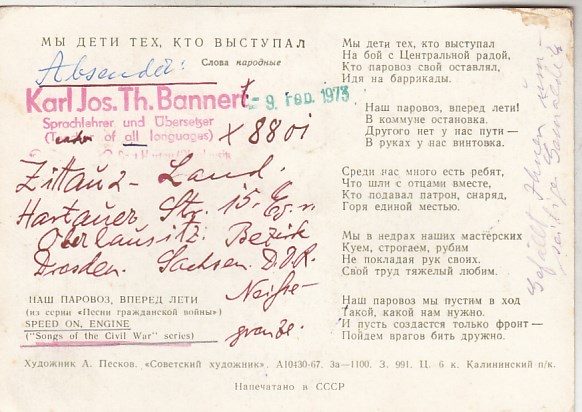 МЫ ДЕТИ ТЕХ, КТО ВЫСТУПАЛ
Absender:
Слова народные
Karl Jos. Th. Bannert
Sprachlehrer und Übersetzer
of all languages)
- 9. Feb. 1973
X 8801
Zittau 2 - Land.
Hartauer Str. 15.
Oberlausitz. Bezirk
Dresden. Sachsen. D.D.R.
Neiße-
НАШ ПАРОВОЗ, ВПЕРЕД ЛЕТИ
(из серии «Песни гражданской войны»)
SPEED ON, ENGINE
("Songs of the Civil War" series)
Мы дети тех, кто выступал
На бой с Центральной радой,
Кто паровоз свой оставлял,
Идя на баррикады.
Наш паровоз, вперед лети!
В коммуне остановка.
Другого нет у нас пути —
В руках у нас винтовка.
Среди нас много есть ребят,
Что шли с отцами вместе,
Кто подавал патрон, снаряд,
Горя единой местью.
Мы в недрах наших мастерских
Куем, строгаем, рубим
Не покладая рук своих.
Свой труд тяжелый любим.
Наш паровоз мы пустим в ход
Такой, какой нам нужно.
И пусть создастся только фронт —
Пойдем врагов бить дружно.
Gefällt Ihnen
Художник А. Песков. «Советский художник». А10430-67. За—1100. З. 991. Ц. 6 к. Калининский п/к.
Напечатано в СССР